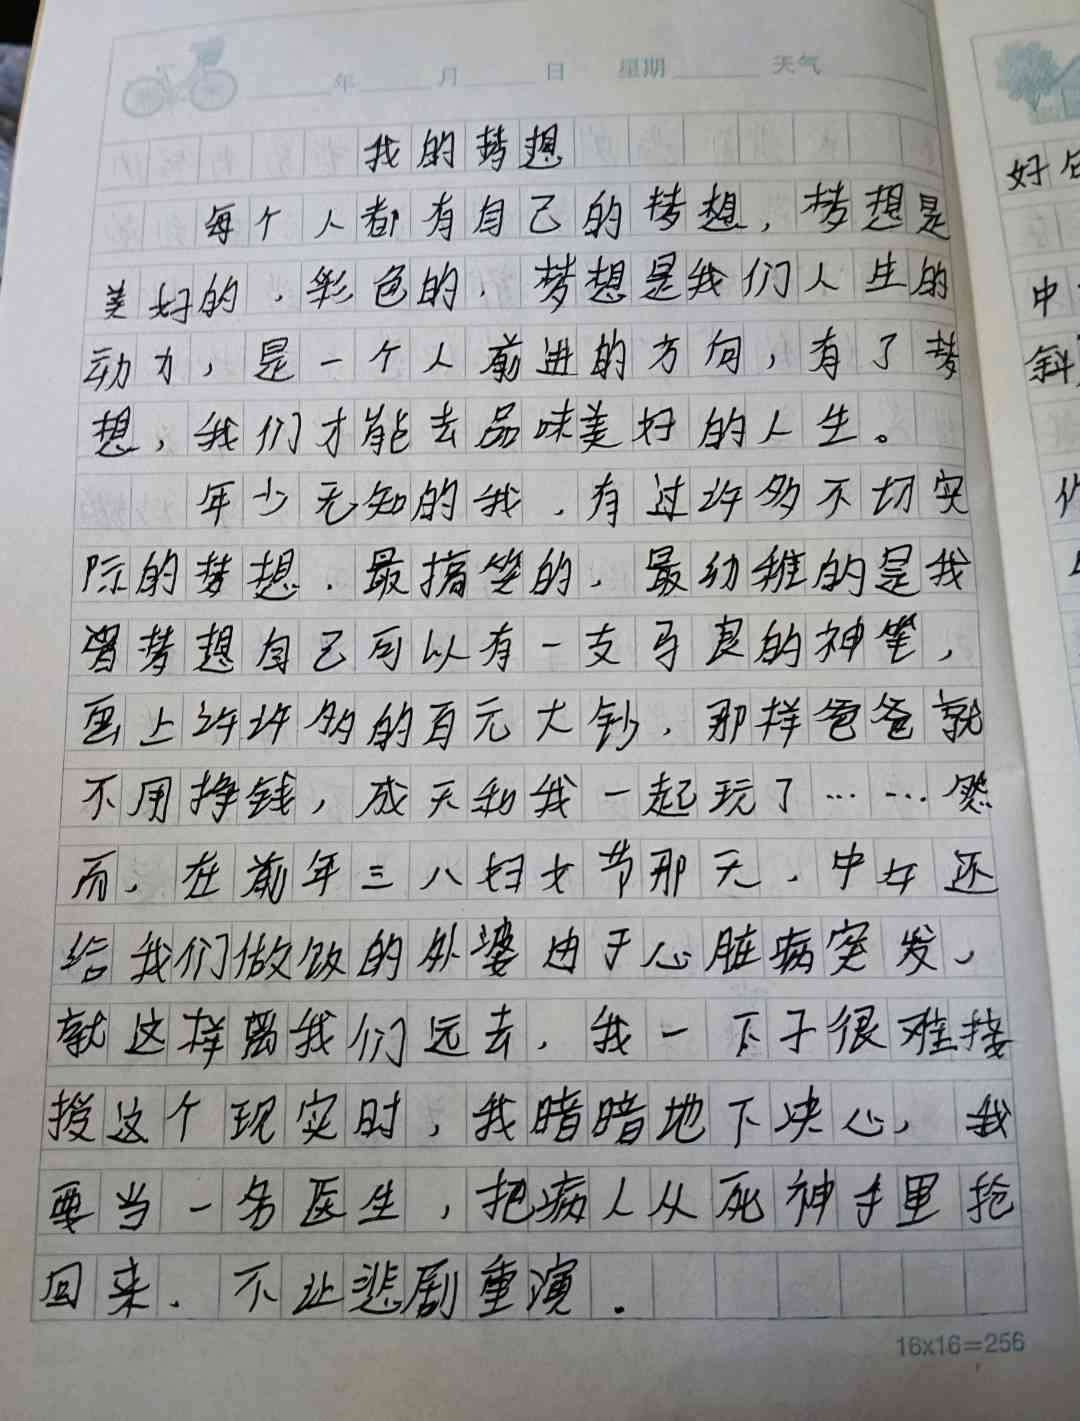 年 月 日 星期 天气
我的梦想
每个人都有自己的梦想，梦想是
美好的，彩色的，梦想是我们人生的
动力，是一个人前进的方向，有了梦
想，我们才能去品味美好的人生。
年少无知的我，有过许多不切实
际的梦想，最搞笑的，最幼稚的是我
曾梦想自己可以有一支马良的神笔，
画上许许多多的百元大钞，那样爸爸就
不用挣钱，成天和我一起玩了……然
而，在前年三八妇女节那天，中午还
给我们做饭的外婆由于心脏病突发，
就这样离我们远去，我一下子很难接
授这个现实时，我暗暗地下决心，我
要当一名医生，把病人从死神手里抢
回来，不让悲剧重演.
16x16=256
好
中
斜